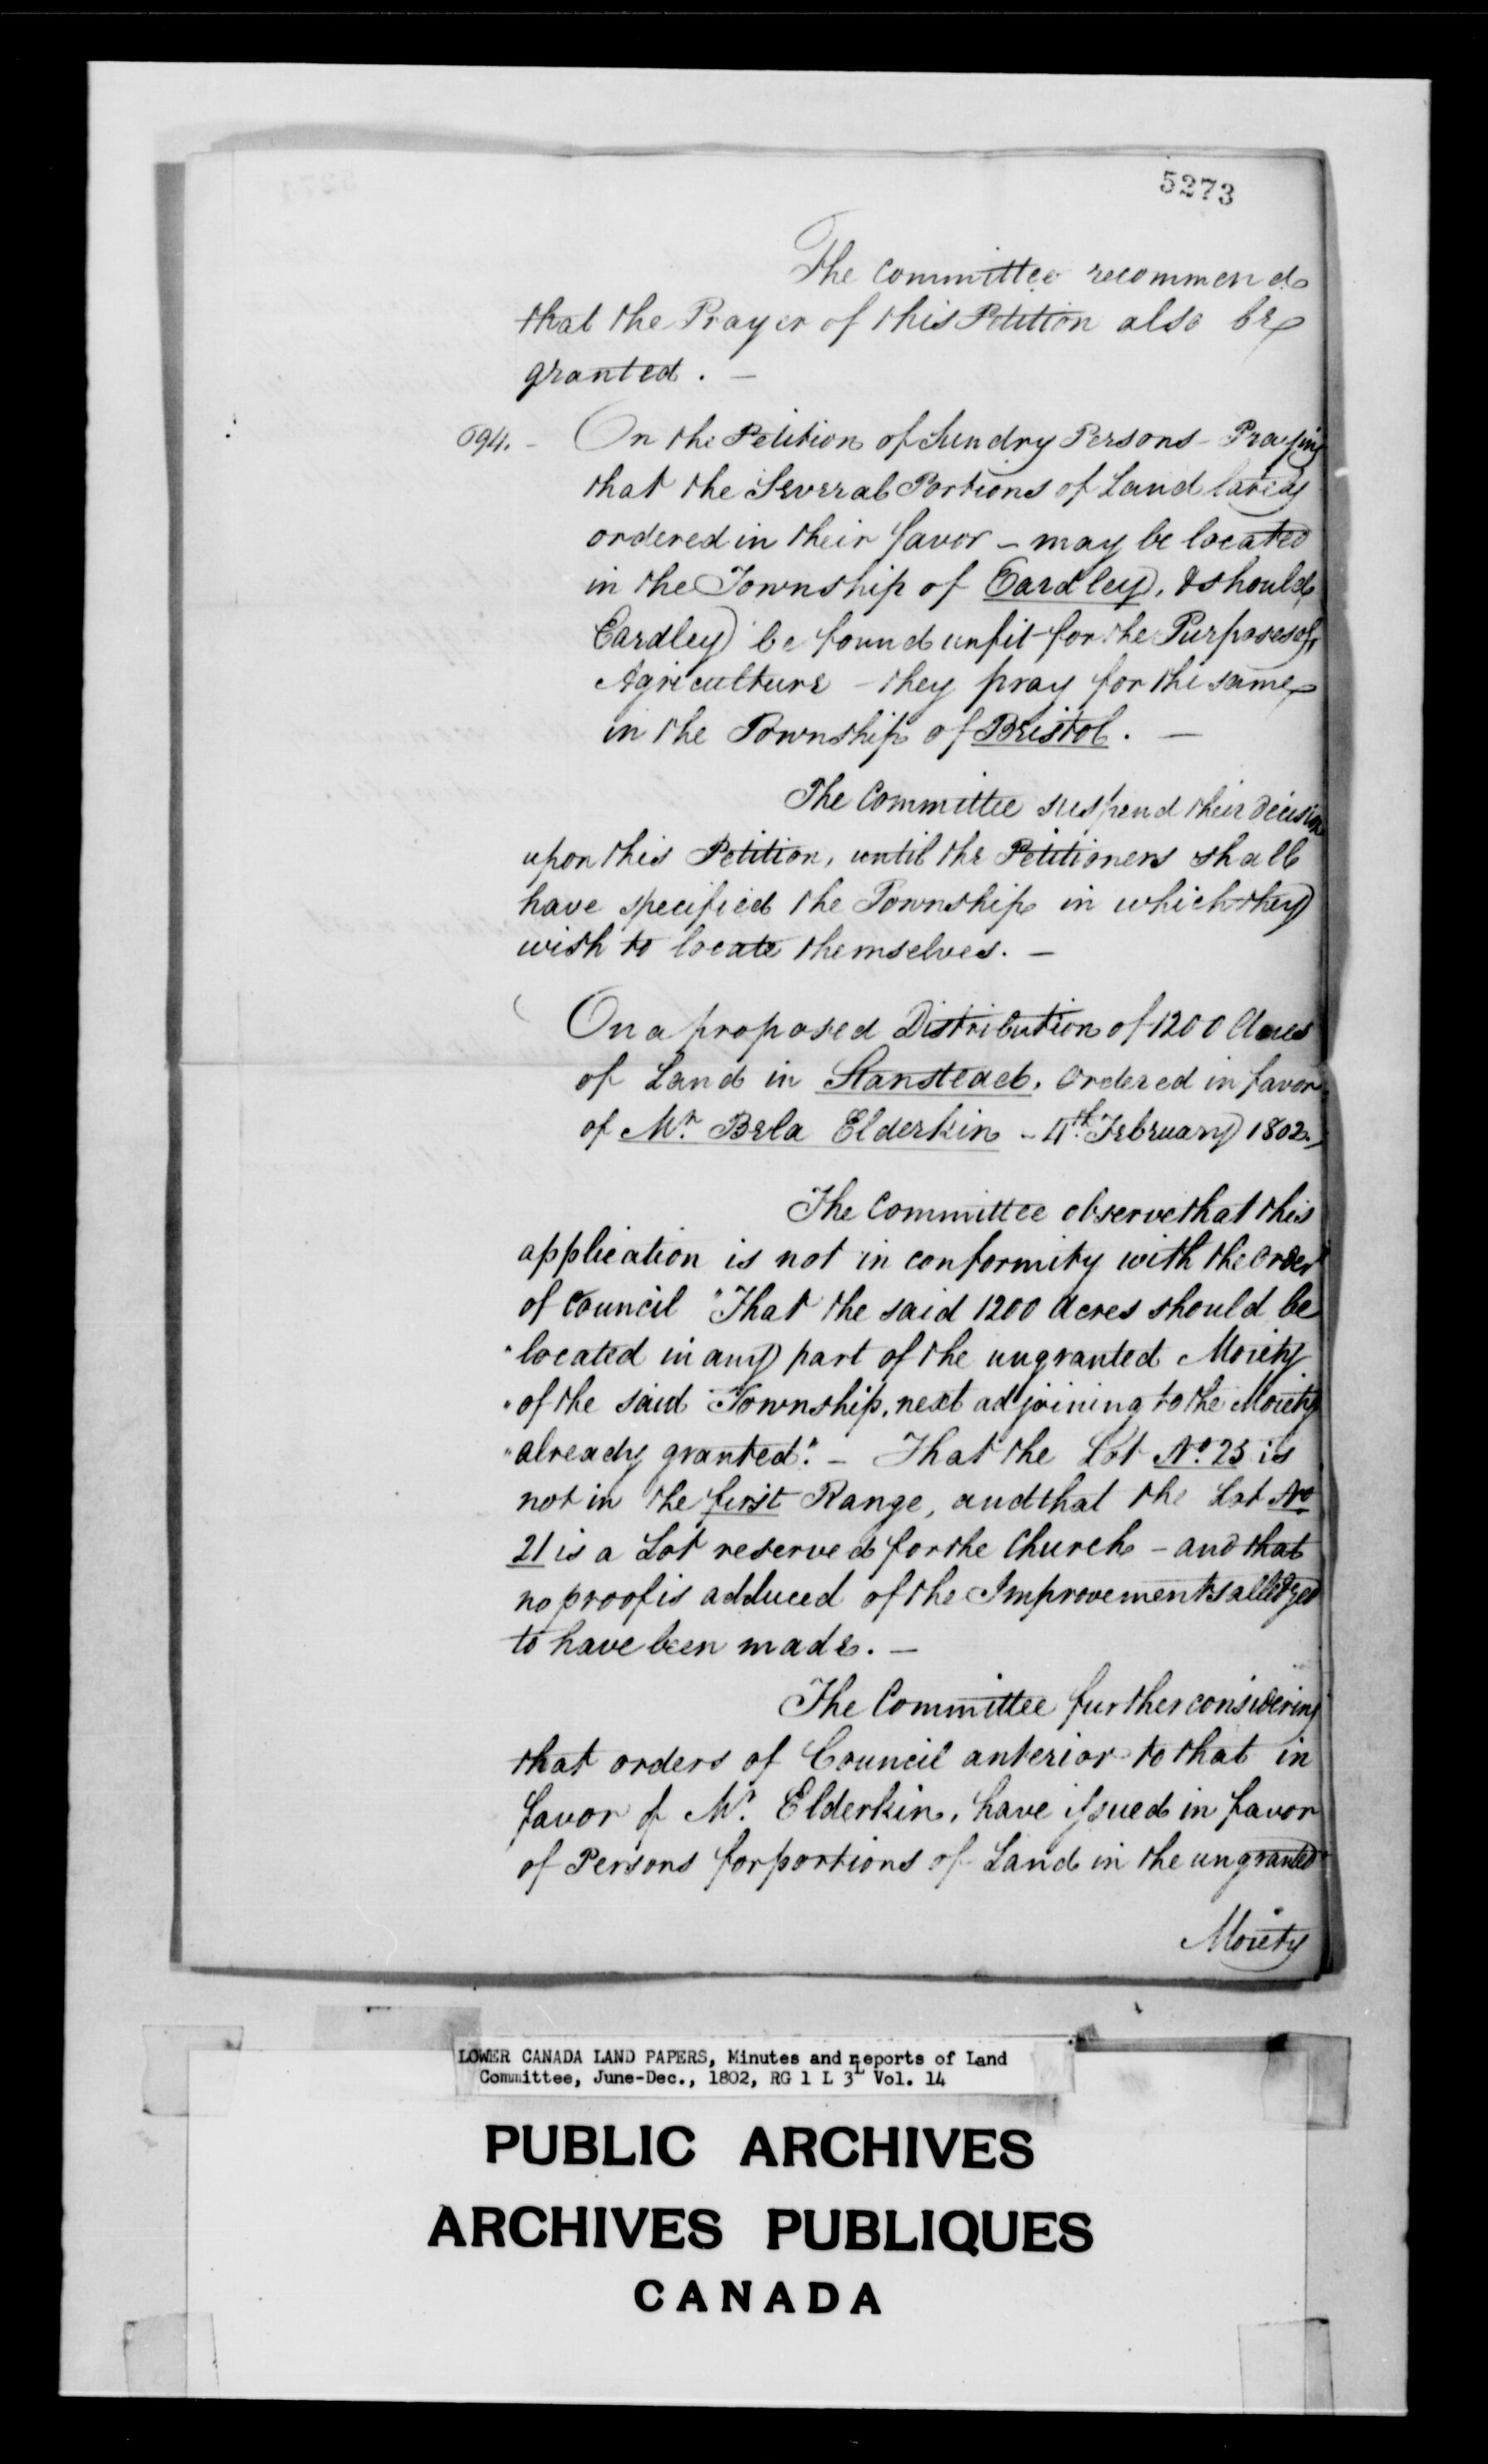 5273
The Committee recommend
that the Prayer of this Petition also be
granted. —
694. - On the Petition of Sundry Persons - Praying
that the Several Portions of Land lately
ordered in their favor - may be located
in the Township of Eardley, & should
Eardley be found unfit for the Purposes of
Agriculture - they pray for the same
in the Township of Bristol. —
The Committee suspend their decision
upon this Petition, until the Petitioners shall
have specified the Township in which they
wish to locate themselves. —
On a proposed Distribution of 1200 Acres
of Land in Stanstead, Ordered in favor
of Mr. Bela Elderkin - 4th. February 1802.
The Committee observe that this
application is not in conformity with the Order
of Council "That the said 1200 Acres should be
"located in any part of the ungranted Moiety
"of the said Township, next adjoining to the Moiety
"already granted." - That the Lot No. 25 is
not in the first Range, and that the Lot No
21 is a Lot reserved for the Church - and that
no proof is adduced of the Improvements alledged
to have been made. —
The Committee further considering
that orders of Council anterior to that in
favor of Mr. Elderkin, have issued in favor
of Persons for portions of Land in the ungranted
Moiety
LOWER CANADA LAND PAPERS, Minutes and Reports of Land
Committee, June-Dec., 1802, RG 1 L 3L Vol. 14
PUBLIC ARCHIVES
ARCHIVES PUBLIQUES
CANADA